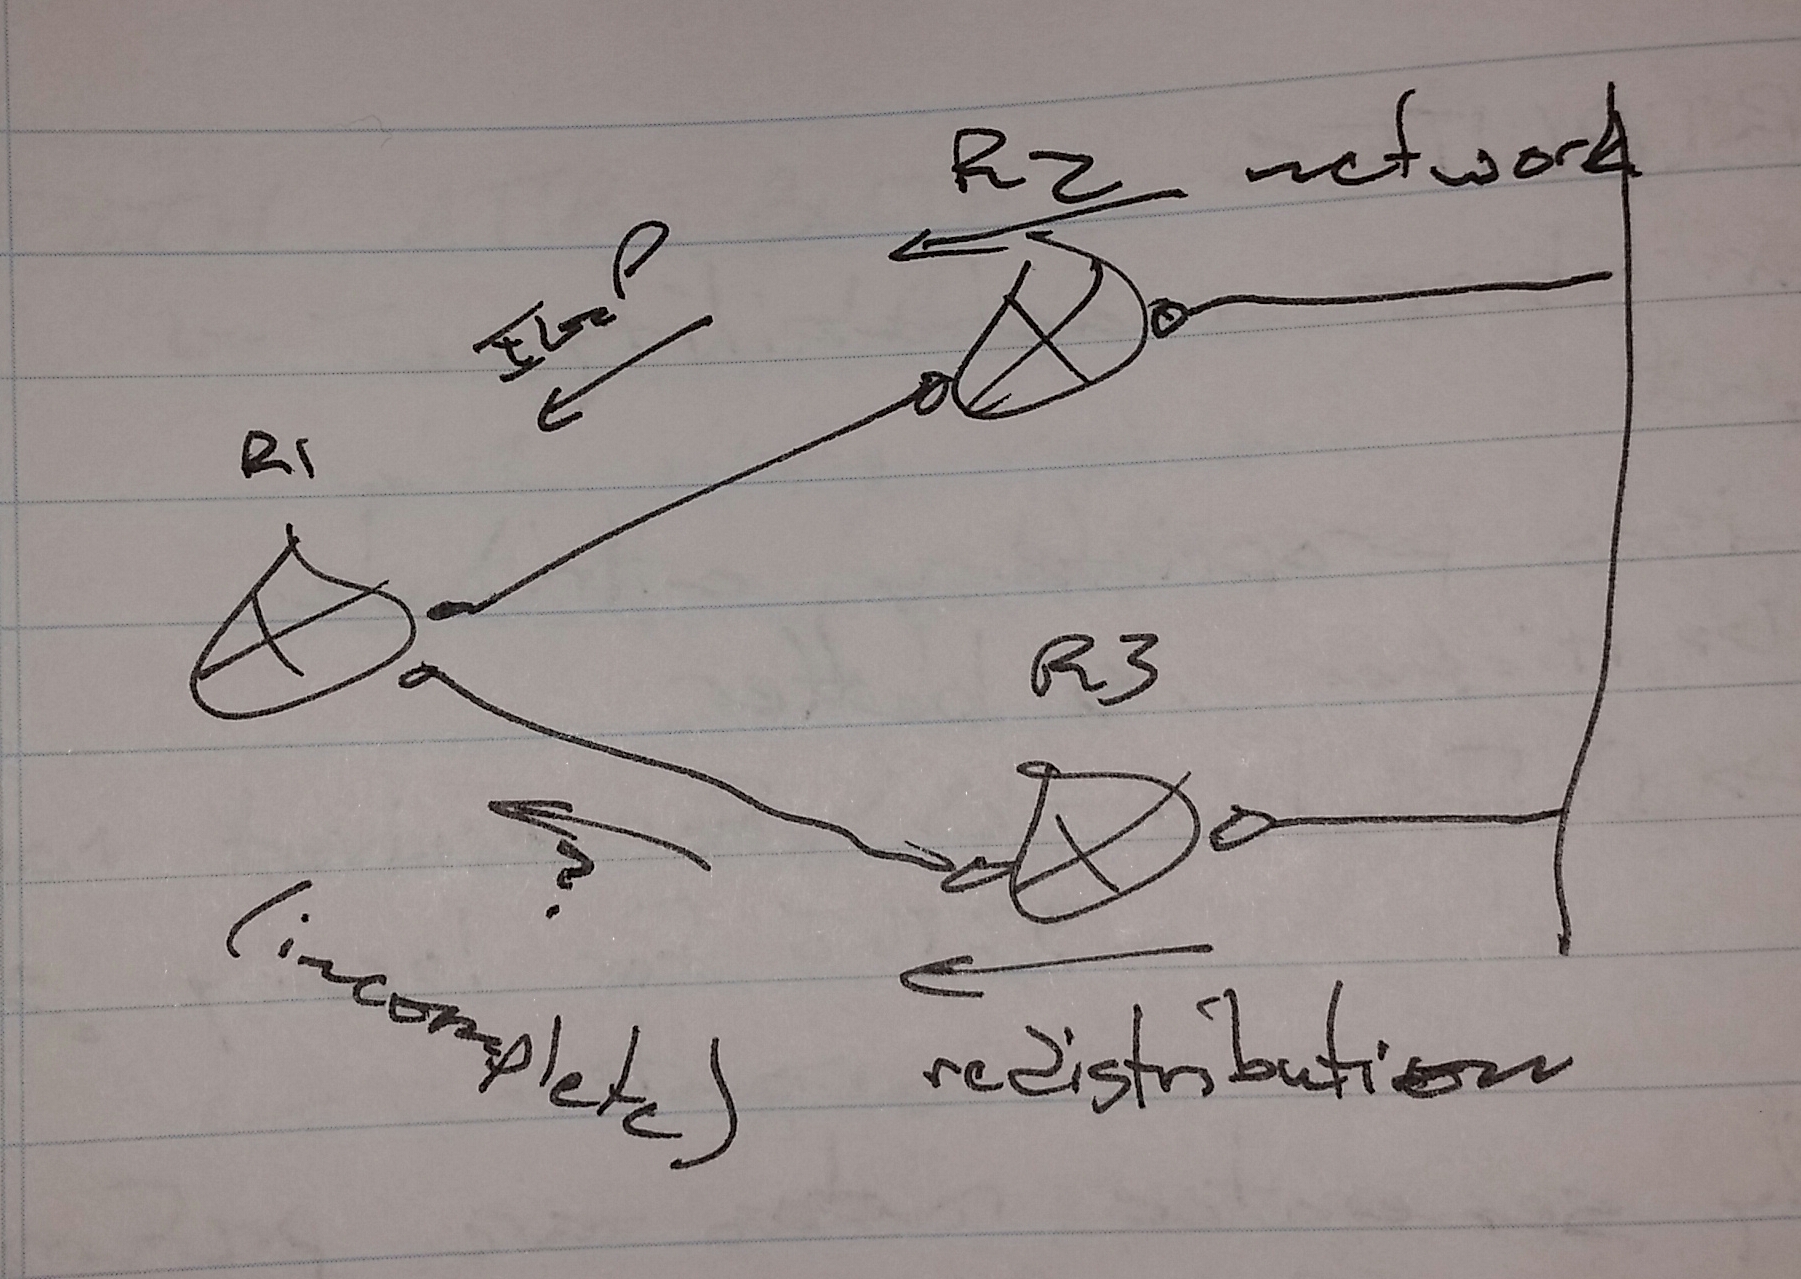 R2 network
IGP
R1
R3
?
(incomplete)
redistribution